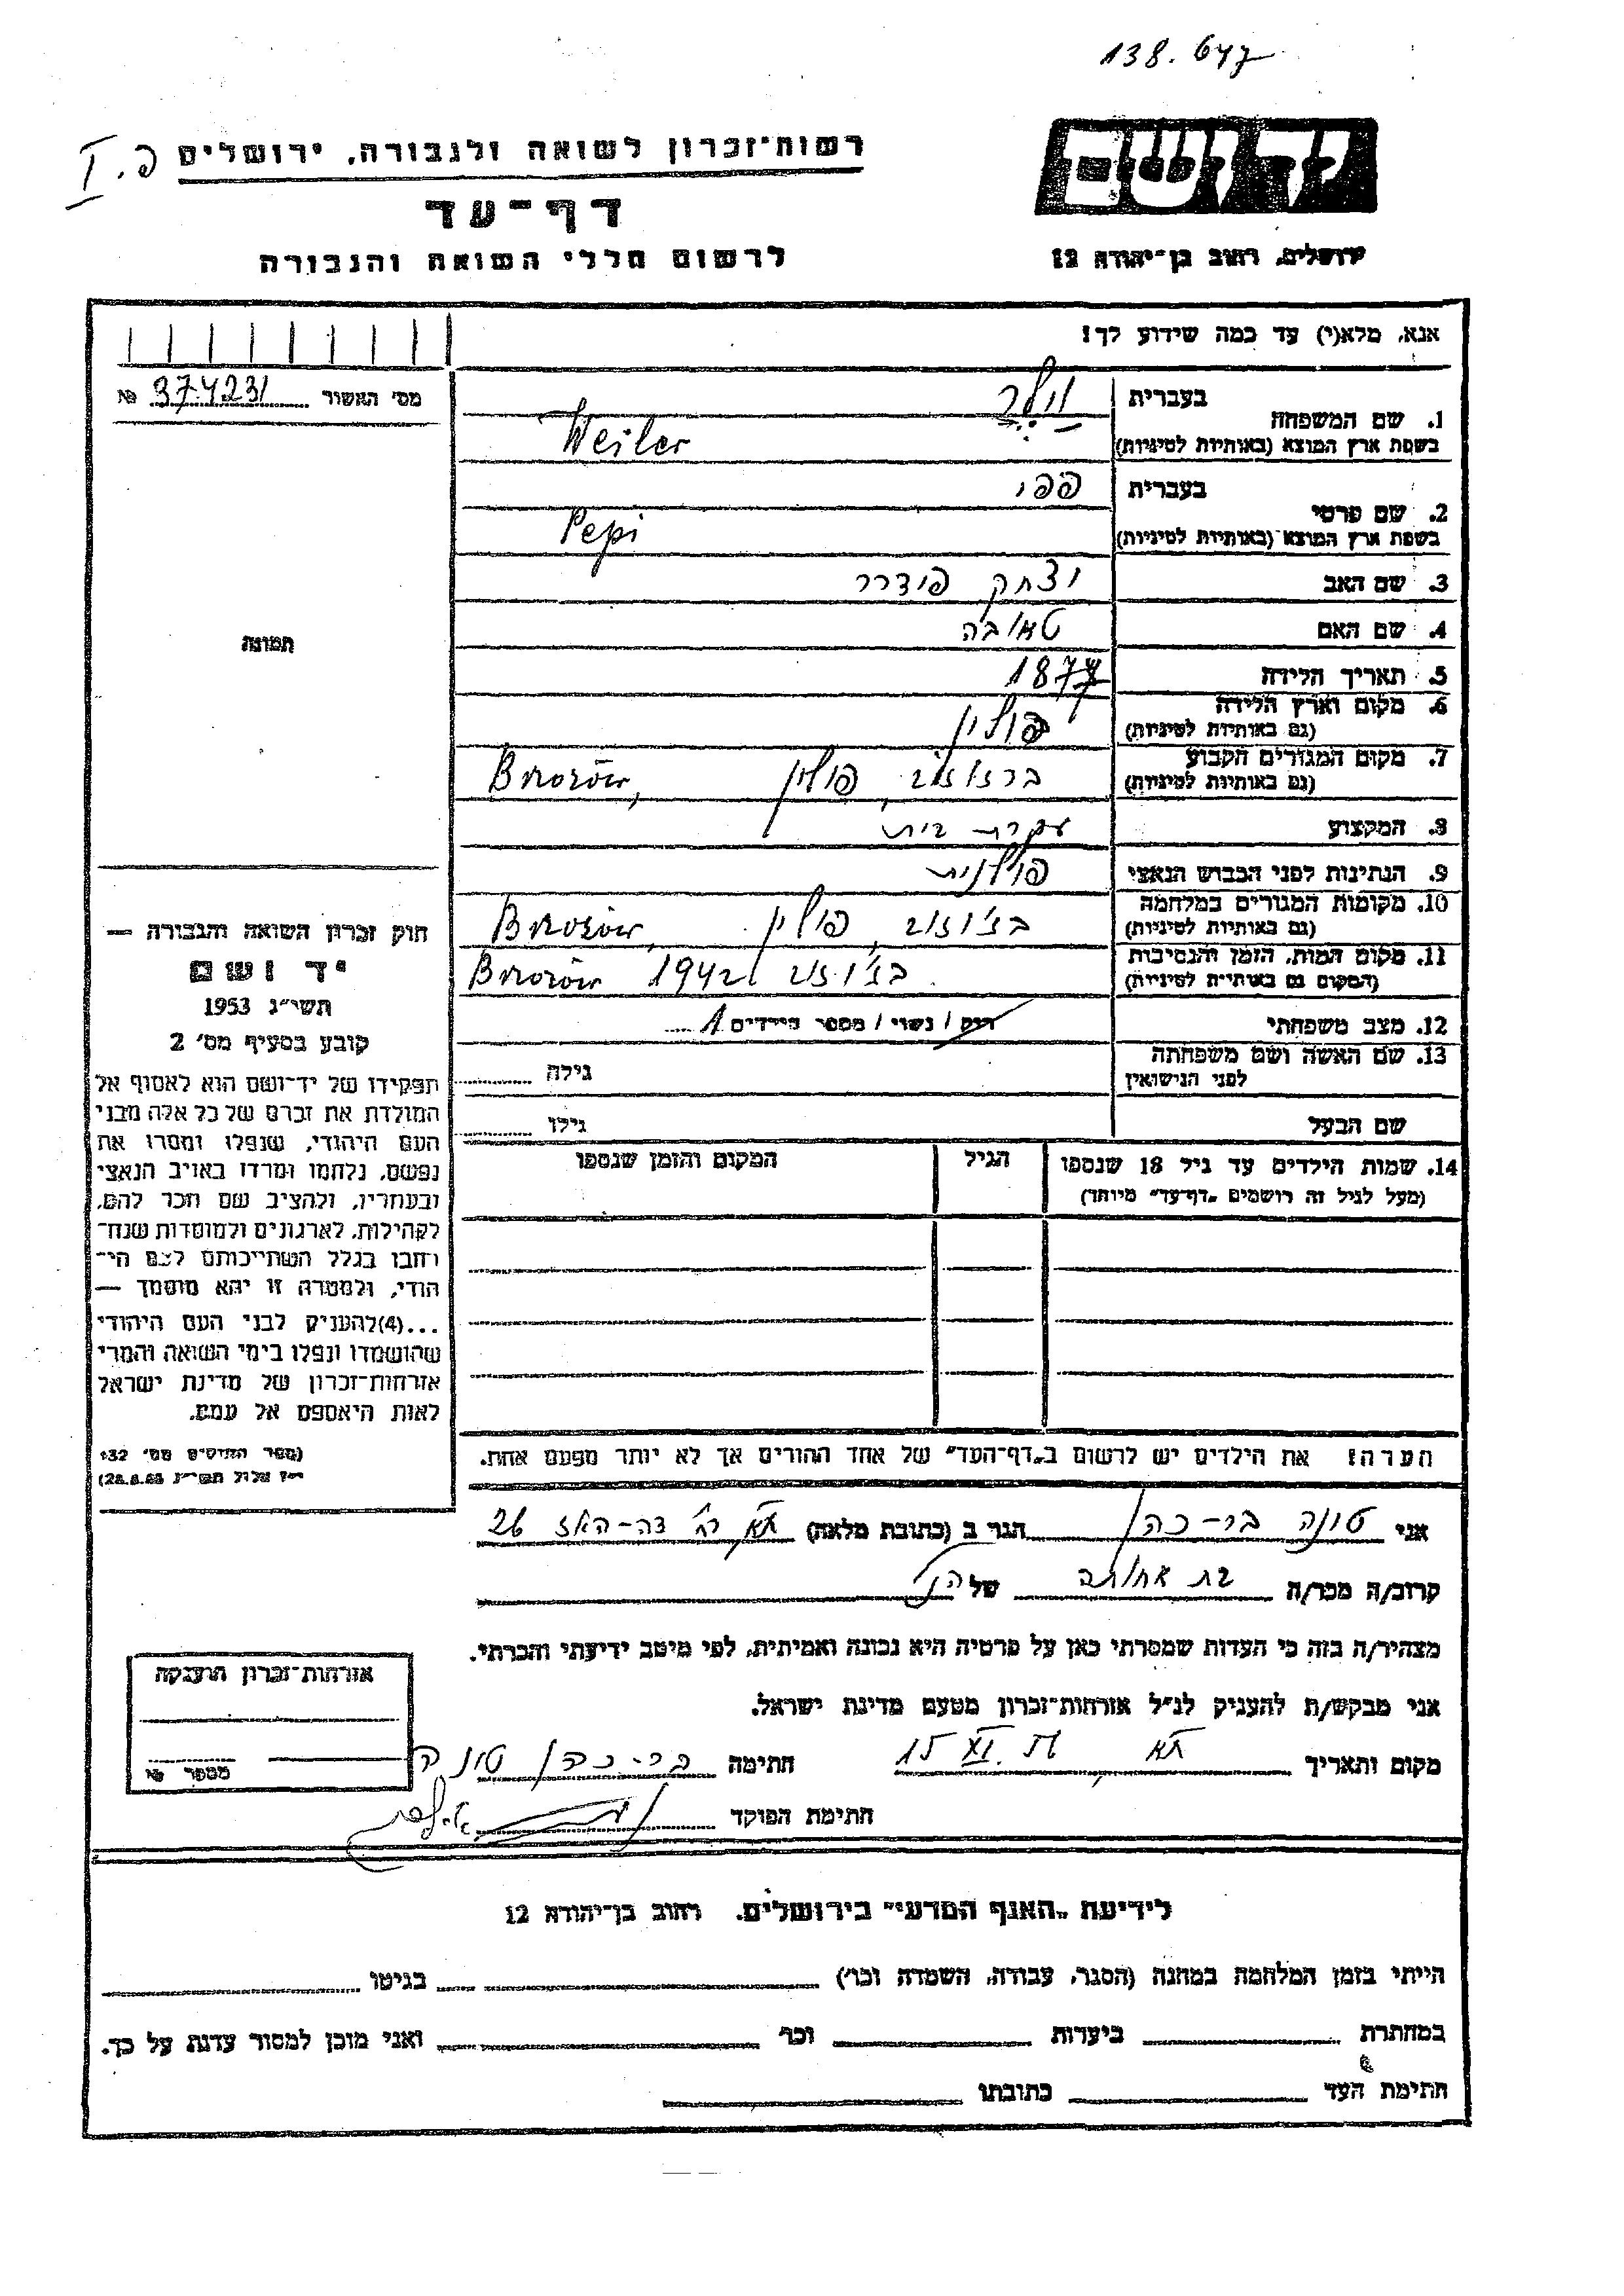 138.647
רשות־זכרון לשואה ולגבורה, ירושלים
פ. I
דף־עד
לרשום חללי השואה והגבורה
יד ושם
ירושלים, רחוב בן־יהודה 12
אנא, מלא(י) עד כמה שידוע לך!
מס׳ האשור 374231 №
1. שם המשפחה
בעברית ויילר
בשפת ארץ המוצא (באותיות לטיניות) Weiler
2. שם פרטי
בעברית פפי
בשפת ארץ המוצא (באותיות לטיניות) Pepi
3. שם האב יצחק פידרר
4. שם האם טאובה
5. תאריך הלידה 1877
6. מקום וארץ הלידה פולין
(גם באותיות לטיניות)
7. מקום המגורים הקבוע ברזוזוב, פולין Brzozów,
(גם באותיות לטיניות)
8. המקצוע עקרת בית
9. הנתינות לפני הכבוש הנאצי פולנית
10. מקומות המגורים במלחמה בז׳וזוב, פולין Brzozów,
(גם באותיות לטיניות)
11. מקום המות, הזמן והנסיבות בז׳וזוב 1942 Brzozów
(המקום גם באותיות לטיניות)
12. מצב משפחתי רוק / נשוי / מספר הילדים 1
13. שם האשה ושם משפחתה
לפני הנישואין
גילה
שם הבעל גילו
14. שמות הילדים עד גיל 18 שנספו
(מעל לגיל זה רושמים „דף־עד״ מיוחד)
הגיל
המקום והזמן שנספו
הערה: את הילדים יש לרשום ב„דף־העד״ של אחד ההורים אך לא יותר מפעם אחת.
תמונה
חוק זכרון השואה והגבורה —
יד ושם
תשי״ג 1953
קובע בסעיף מס׳ 2
תפקידו של יד־ושם הוא לאסוף אל
המולדת את זכרם של כל אלה מבני
העם היהודי, שנפלו ומסרו את
נפשם, נלחמו ומרדו באויב הנאצי
ובעוזריו, ולהציב שם וזכר להם,
לקהילות, לארגונים ולמוסדות שנח־
רחבו בגלל השתייכותם לעם הי־
הודי, ולמטרה זו יהא מוסמך —
...(4)להעניק לבני העם היהודי
שהושמדו ונפלו בימי השואה והמרי
אזרחות־זכרון של מדינת ישראל
לאות היאספם אל עמם.
(ספר החוקים מס׳ 132
אני טונה בר-כהן הגר ב (כתובת מלאה) ת״א רח׳ דה-האז 26
קרוב/ה מכר/ה בת אחותה של הנ״ל
מצהיר/ה בזה כי העדות שמסרתי כאן על פרטיה היא נכונה ואמיתית, לפי מיטב ידיעתי והכרתי.
אני מבקש/ת להעניק לנ״ל אזרחות־זכרון מטעם מדינת ישראל.
מקום ותאריך ת״א, 15 XI חתימה בר-כהן טונה
חתימת הפוקד
אזרחות־זכרון הוענקה
מספר №
לידיעת „האגף המדעי״ בירושלים. רחוב בן־יהודה 12
הייתי בזמן המלחמה במחנה (הסגר, עבודה, השמדה וכו׳) בגיטו
במחתרת ביערות וכו׳ ואני מוכן למסור עדות על כך.
חתימת העד כתובתו